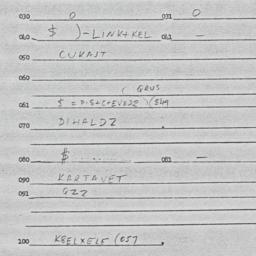 030 0 031 0
040 $ )-LINK+KEL 041 —
050 CUKAST
060
( GRUS
061 $ = D.S+C+EVEDZ )(549
070 DIHALDZ .
080 $ ........ 083 —
090 KARTAVET
091 GZZ
100 KEELXELF (057 .